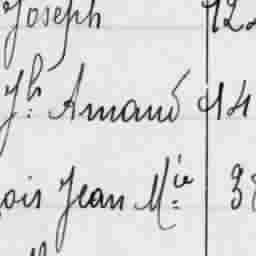 Joseph 12
Jh: Amand 14
ois Jean Mie 3